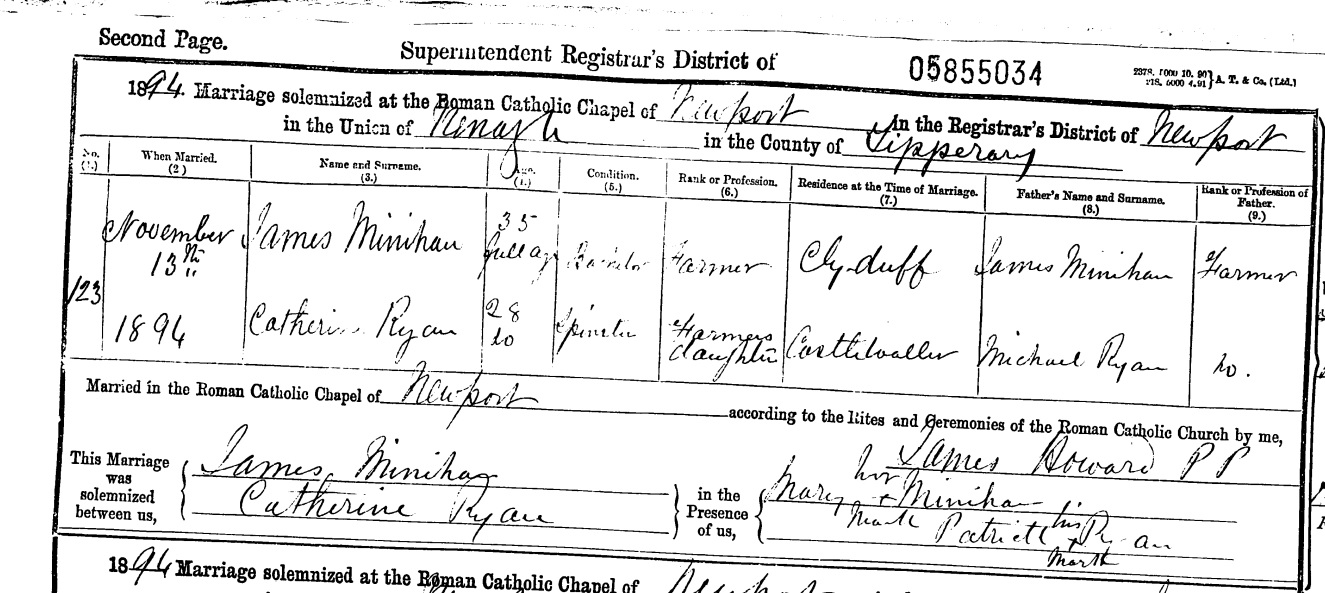 Second Page.
Superintendent Registrar's District of
05855034
A. T. & Co. (Ltd.)
1894. Marriage solemnized at the Roman Catholic Chapel of Newport in the Registrar's District of Newport
in the Union of Nenagh in the County of Tipperary
No. (1.) When Married. (2) Name and Surname. (3.) Age. (4.) Condition. (5.) Rank or Profession. (6.) Residence at the Time of Marriage. (7.) Father's Name and Surname. (8.) Rank or Profession of Father. (9.)
123
November 13th 1894
James Minihan 35 full age Bachelor Farmer Clyduff James Minihan Farmer
Catherine Ryan 28 Do Spinster Farmers daughter Castlewaller Michael Ryan Do.
Married in the Roman Catholic Chapel of Newport according to the Rites and Ceremonies of the Roman Catholic Church by me,
James Howard P P
This Marriage was solemnized between us,
James Minihan
Catherine Ryan
in the Presence of us,
Mary her + mark Minihan
Patrick his + mark Ryan
1894 Marriage solemnized at the Roman Catholic Chapel of